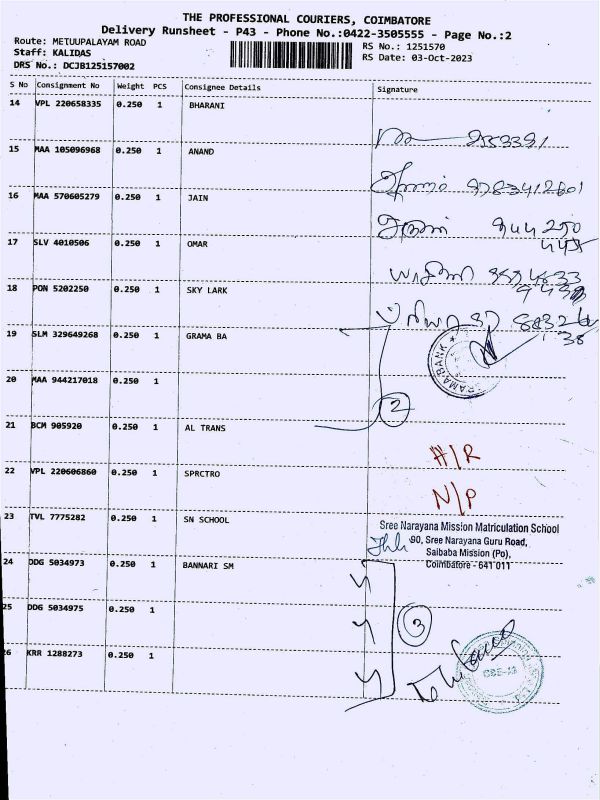 THE PROFESSIONAL COURIERS, COIMBATORE
Delivery Runsheet - P43 - Phone No.:0422-3505555 - Page No.:2
Route: METUUPALAYAM ROAD
Staff: KALIDAS
DRS No.: DCJB125157002
RS No.: 1251570
RS Date: 03-Oct-2023
S No Consignment No Weight PCS Consignee Details Signature
14 VPL 220658335 0.250 1 BHARANI
15 MAA 105096968 0.250 1 ANAND
16 MAA 570605279 0.250 1 JAIN
17 SLV 4010506 0.250 1 OMAR
18 PON 5202250 0.250 1 SKY LARK
19 SLM 329649268 0.250 1 GRAMA BA
20 MAA 944217018 0.250 1
2
21 BCM 905920 0.250 1 AL TRANS
H/R
22 VPL 220606860 0.250 1 SPRCTRO
N/P
23 TVL 7775282 0.250 1 SN SCHOOL
Sree Narayana Mission Matriculation School
90, Sree Narayana Guru Road,
Saibaba Mission (Po),
Coimbatore - 641 011
24 DDG 5034973 0.250 1 BANNARI SM
25 DDG 5034975 0.250 1
3
26 KRR 1288273 0.250 1